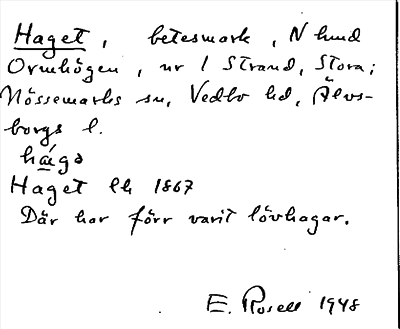 Haget, betesmark, N hund
Ormhögen, ur 1 Strand, Stora;
Nössemarks sn, Vedbo hd, Älvs-
borgs l.
hága
Haget lk 1867
Där har förr varit lövhagar.
E. Rosell 1948